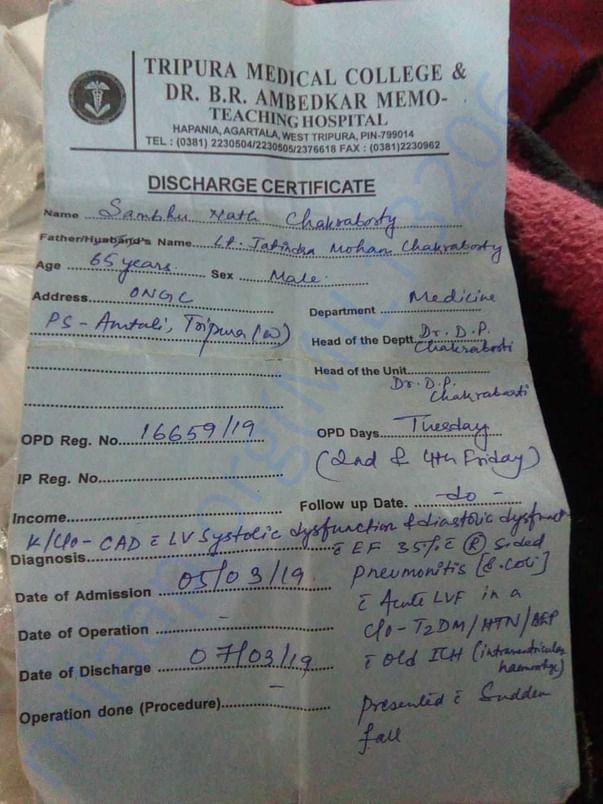 TRIPURA MEDICAL COLLEGE &
DR. B.R. AMBEDKAR MEMO-
TEACHING HOSPITAL
HAPANIA, AGARTALA, WEST TRIPURA, PIN-799014
TEL : (0381) 2230504/2230505/2376618 FAX : (0381)2230962
DISCHARGE CERTIFICATE
Name Sambhu Nath Chakraborty
Father/Husband's Name Lt. Jatindra Mohan Chakraborty
Age 65 years. Sex Male.
Address ONGC
PS - Amtali, Tripura (W)
Department Medicine
Head of the Deptt. Dr. D.P. Chakraborti
Head of the Unit Dr. D.P. Chakraborti
OPD Reg. No. 16659/19
OPD Days Tuesday
(2nd & 4th Friday)
IP Reg. No.
Follow up Date. - do -
Income
Diagnosis K/C/O - CAD c̄ LV Systolic dysfunction & diastolic dysfunct
c̄ EF 35% c̄ (R) sided
Pneumonitis [E.coli]
c̄ Acute LVF in a
C/O - T2DM/HTN/
c̄ Old ICH (intraventricular haemorrhage)
Presented c̄ Sudden
fall
Date of Admission 05/03/19
Date of Operation -
Date of Discharge 07/03/19
Operation done (Procedure) -